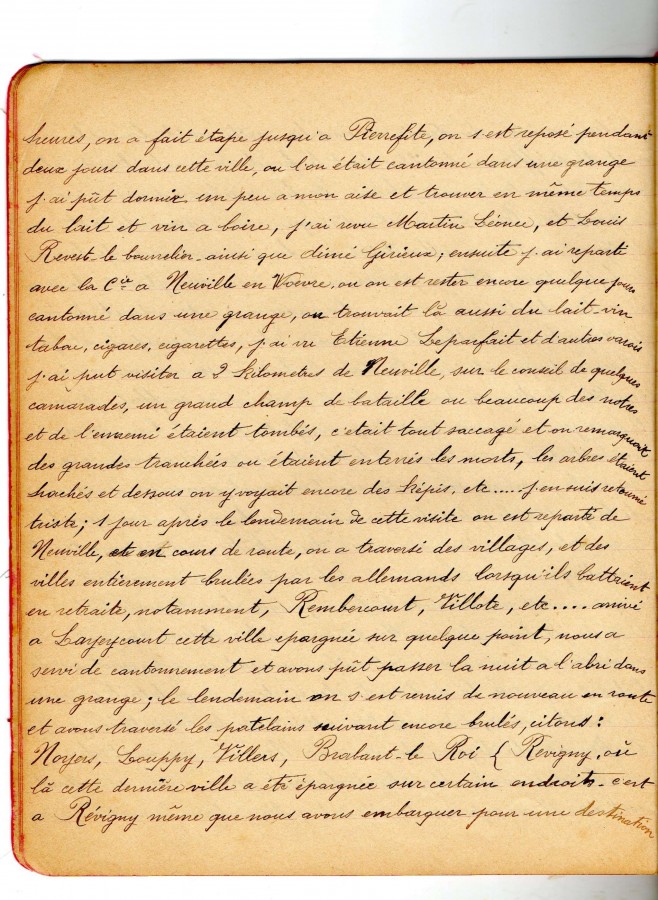 heures, on a fait étape jusqu'a Pierrefite, on s'est reposé pendant
deux jours dans cette ville, ou l'on était cantonné dans une grange
j'ai pût dormir un peu a mon aise et trouver en même temps
du lait et vin a boire, j'ai revu Martin Léonce, et Louis
Revest le bourrelier ainsi que dimé Girieux; ensuite j'ai reparti
avec la Cie a Neuville en Woëvre, ou on est rester encore quelque jours
cantonné dans une grange, on trouvait là aussi du lait-vin
tabac, cigares, cigarettes, j'ai vu Etienne Leparfait et d'autres varois
j'ai put visiter a 2 kilometres de Neuville, sur le conseil de quelques
camarades, un grand champ de bataille ou beaucoup des notres
et de l'ennemi étaient tombés, c'etait tout saccagé et on remarquait
des grandes tranchées ou étaient enterrés les morts, les arbres étaient
hachés et dessous on y voyait encore des képis, etc.... j'en suis retourné
triste; 1 jour après le lendemain de cette visite on est reparti de
Neuville, et en cours de route, on a traversé des villages, et des
villes entièrement brulées par les allemands lorsqu'ils battaient
en retraite, notamment, Rembercourt, Villote, etc.... arrivé
a cette ville epargnée sur quelque point, nous a
servi de cantonnement et avons pût passer la nuit a l'abri dans
une grange; le lendemain on s'est remis de nouveau en route
et avons traversé les patelains suivant encore brulés, citons:
Noyers, Louppy, Villers, Brabant-le Roi { Revigny, où
là cette dernière ville a été épargnée sur certain endroits. c'est
a Révigny même que nous avons embarquer pour une destination